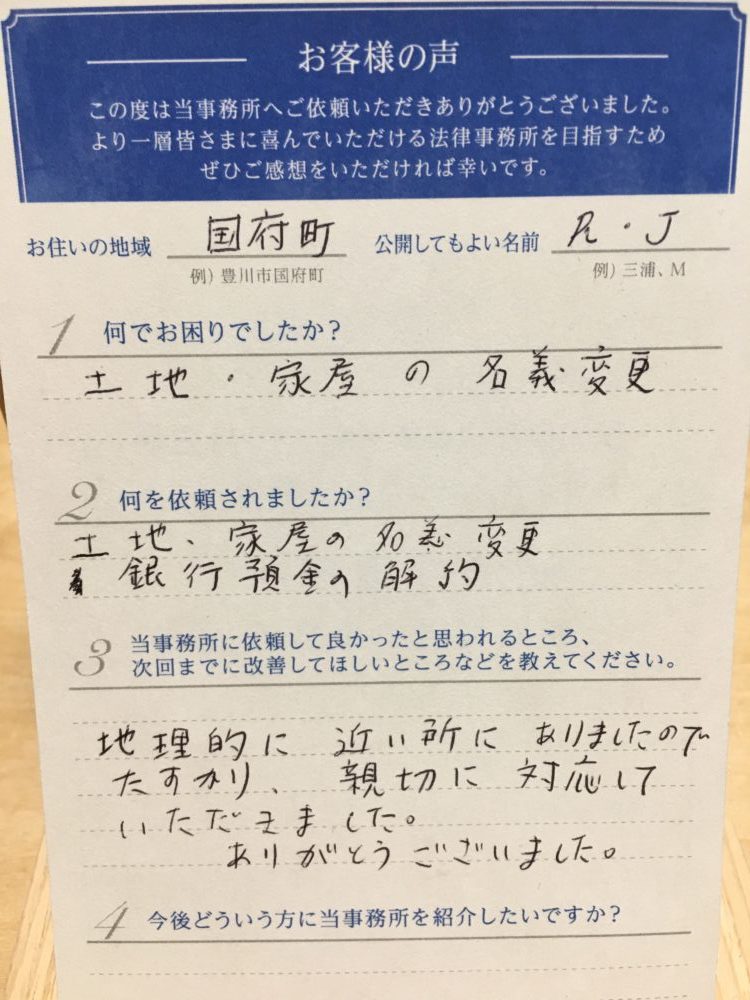 お客様の声
この度は当事務所へご依頼いただきありがとうございました。
より一層皆さまに喜んでいただける法律事務所を目指すため
ぜひご感想をいただければ幸いです。
お住いの地域 国府町 公開してもよい名前 R・J
例）豊川市国府町 例）三浦、M
1 何でお困りでしたか？
土地・家屋の名義変更
2 何を依頼されましたか？
土地、家屋の名義変更
銀行預金の解約
3 当事務所に依頼して良かったと思われるところ、
次回までに改善してほしいところなどを教えてください。
地理的に近い所にありましたので
たすかり、親切に対応して
いただきました。
ありがとうございました。
4 今後どういう方に当事務所を紹介したいですか？